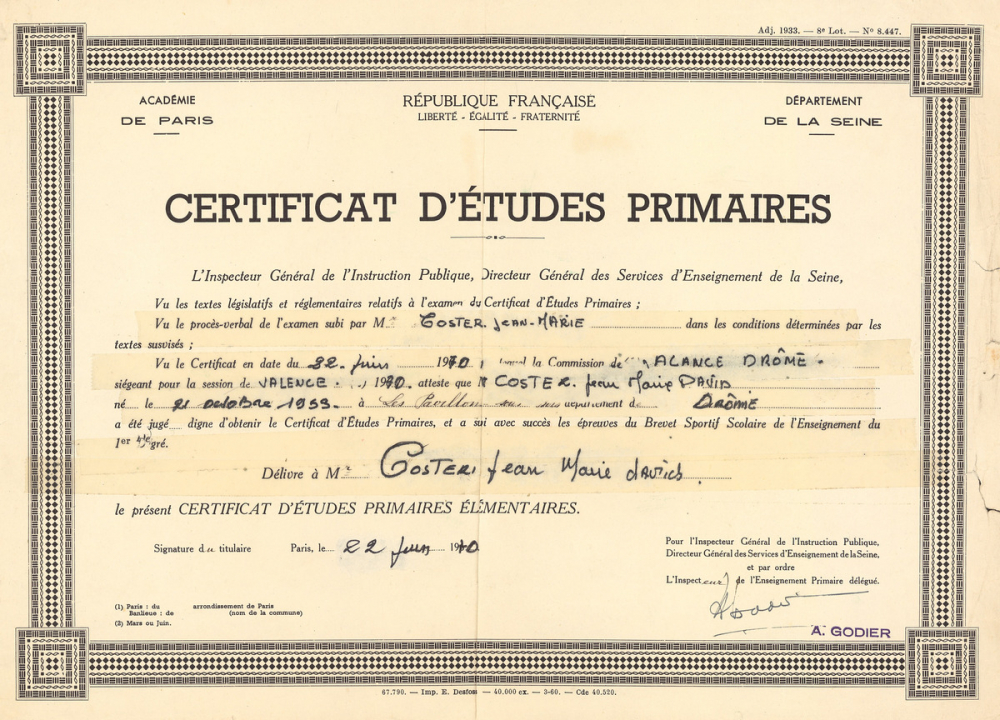 Adj. 1933. — 8e Lot. — No 8.447.
ACADÉMIE
DE PARIS
RÉPUBLIQUE FRANÇAISE
LIBERTÉ - ÉGALITÉ - FRATERNITÉ
DÉPARTEMENT
DE LA SEINE
CERTIFICAT D'ÉTUDES PRIMAIRES
L'Inspecteur Général de l'Instruction Publique, Directeur Général des Services d'Enseignement de la Seine,
Vu les textes législatifs et réglementaires relatifs à l'examen du Certificat d'Études Primaires ;
Vu le procès-verbal de l'examen subi par M COSTER Jean-MARIE dans les conditions déterminées par les
textes susvisés ;
Vu le Certificat en date du 22 Juin 1970, la Commission de DRÔME
siégeant pour la session de VALENCE 1970. atteste que COSTER Jean Marie DAVID
né le 21 octobre 19 à Les Pavillons sous département de DRÔME
a été jugé digne d'obtenir le Certificat d'Études Primaires, et a sui avec succès les épreuves du Brevet Sportif Scolaire de l'Enseignement du
1er gré.
Délivre à Mr COSTER Jean Marie david
le présent CERTIFICAT D'ÉTUDES PRIMAIRES ÉLÉMENTAIRES.
Signature du titulaire Paris, le 22 Juin 1970
Pour l'Inspecteur Général de l'Instruction Publique,
Directeur Général des Services d'Enseignement de la Seine,
et par ordre
L'Inspecteur de l'Enseignement Primaire délégué.
A. GODIER
(1) Paris : du arrondissement de Paris
Banlieue : de (nom de la commune)
(2) Mars ou Juin.
67.790. — Imp. E. Desfossés — 40.000 ex. — 3-60. — Cde 40.520.